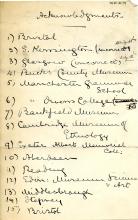 Acknowledgments.
1) Bristol
2) S. Kensington (
3) Glasgow (
4) Bucks County Museum
5) Manchester Grammar
School
6) " Owens College
7) Bankfield Museum
8) Cambridge Museum of
Ethnology
9) Exeter Albert Memorial
Coll:
10) Aberdeen
11) Reading
12) Edin: Museum Science
& Art
13) Middlesborough
14) Stepney
15) Bristol